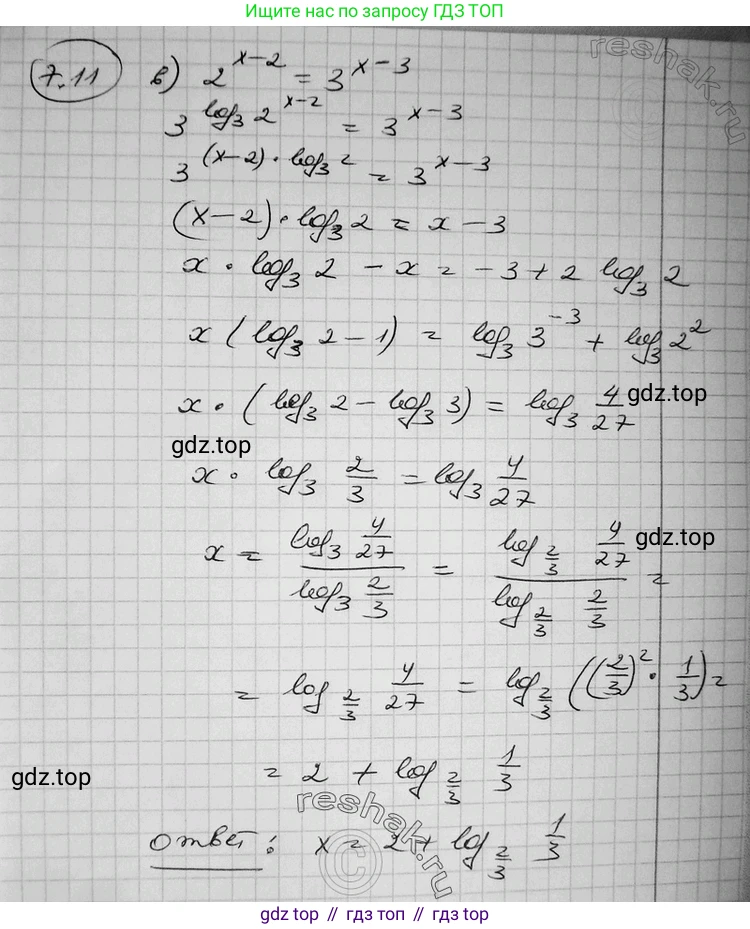 Ищите нас по запросу ГДЗ ТОП
7.11 в) 2^(x-2) = 3^(x-3)
3^(log₃ 2^(x-2)) = 3^(x-3)
3^((x-2)·log₃ 2) = 3^(x-3)
(x-2)·log₃ 2 = x-3
x·log₃ 2 - x = -3+2 log₃ 2
x(log₃ 2-1) = log₃ 3^(-3) + log₃ 2²
x·(log₃ 2 - log₃ 3) = log₃ 4/27
gdz.top
gdz.top
x·log₃ 2/3 = log₃ 4/27
x = (log₃ 4/27)/(log₃ 2/3) = (log_(2/3) 4/27)/(log_(2/3) 2/3) =
gdz.top
= log_(2/3) 4/27 = log_(2/3) ((2/3)²·1/3) =
= 2 + log_(2/3) 1/3
gdz.top
Ответ: x = 2 + log_(2/3) 1/3
reshak.ru
reshak.ru
©
gdz top // гдз топ // gdz top